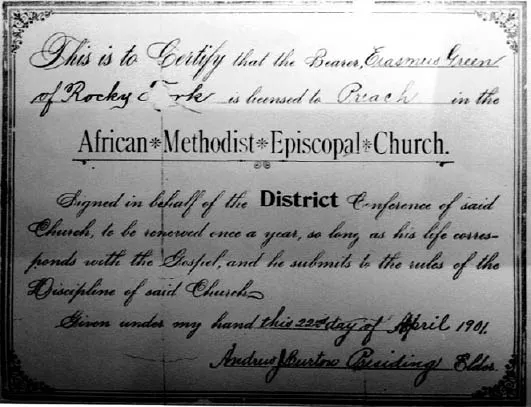 This is to Certify that the Bearer, Erasmus Green
of Rocky Fork is licensed to Preach in the
African*Methodist*Episcopal*Church.
Signed in behalf of the District Conference of said
Church, to be renewed once a year, so long as his life corres-
ponds with the Gospel, and he submits to the rules of the
Discipline of said Church.
Given under my hand this 22nd day of April 1901.
Andrew J Burton Presiding Elder.